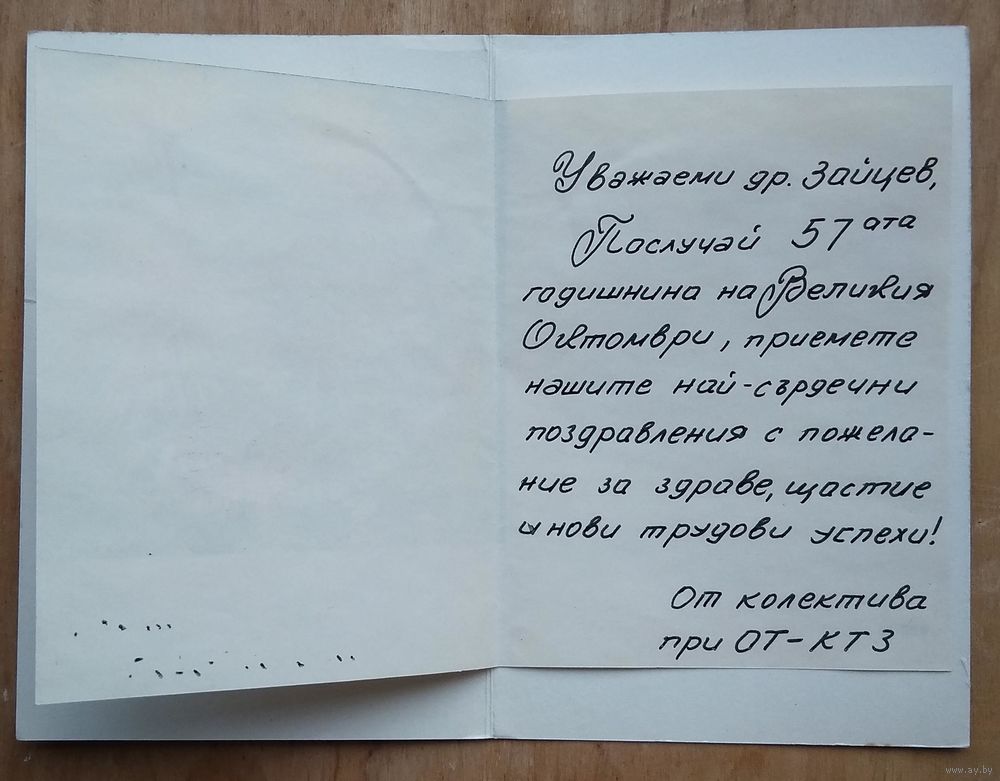 Уважаеми др. Зайцев,
Послучай 57ата
годишнина на Великия
Октомври, приемете
нашите най-сърдечни
поздравления с пожела-
ние за здраве, щастие
и нови трудови успехи!
От колектива
при ОТ-КТЗ
www.ay.by